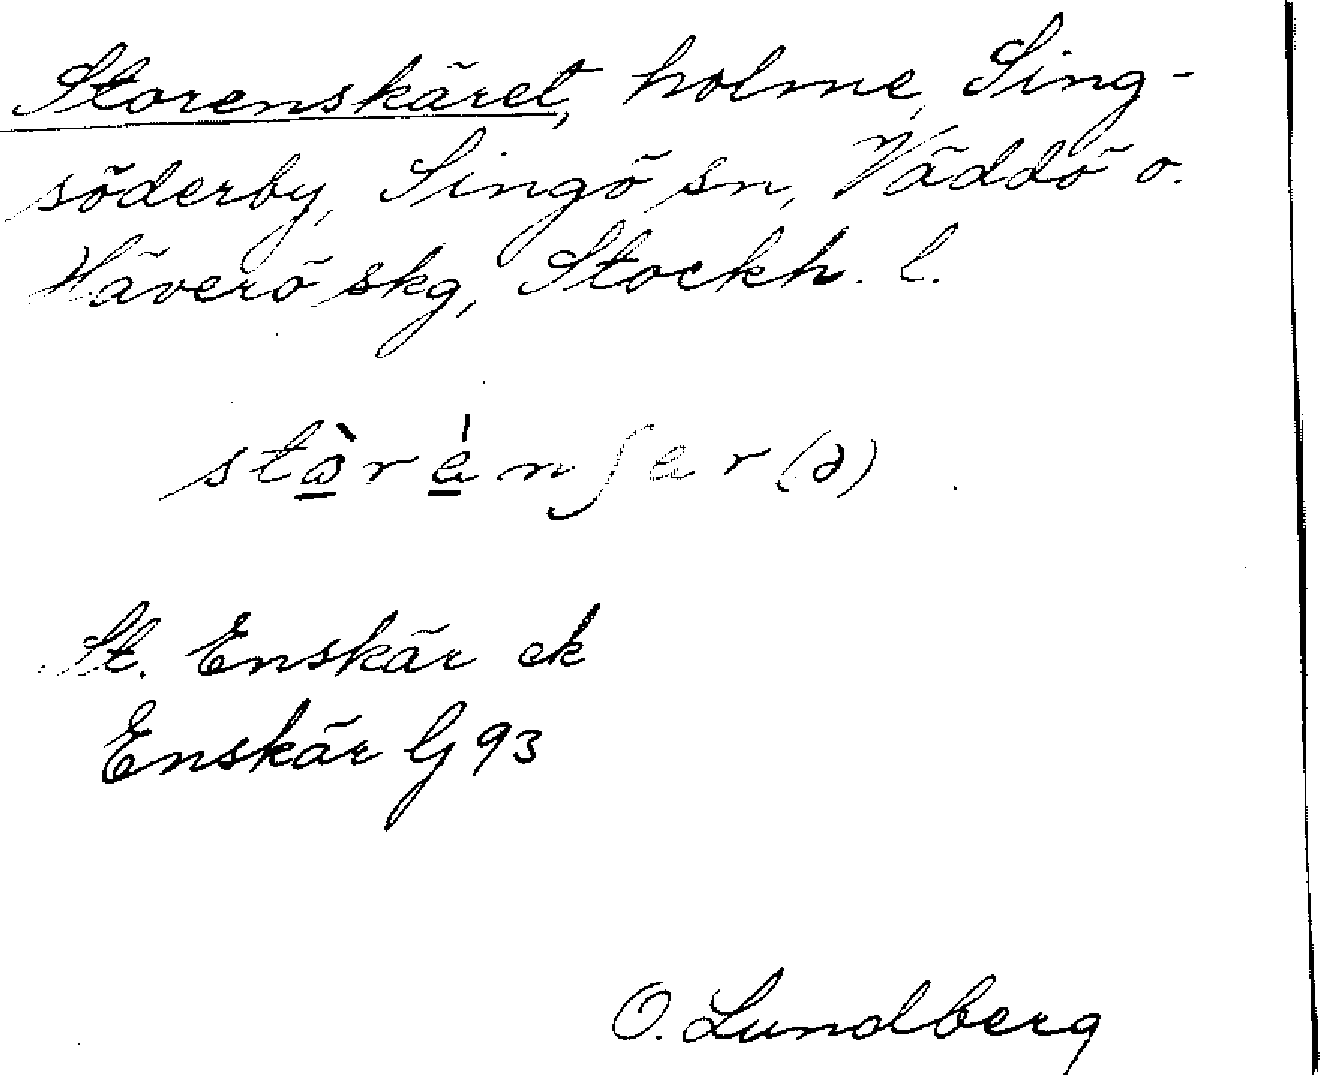 Storenskäret, holme, Sing-
söderby, Singö sn, Väddö o.
Häverö skg, Stockh. l.
stòrénʃer(ə)
St. Enskär ek
Enskär G 93
O. Lundberg